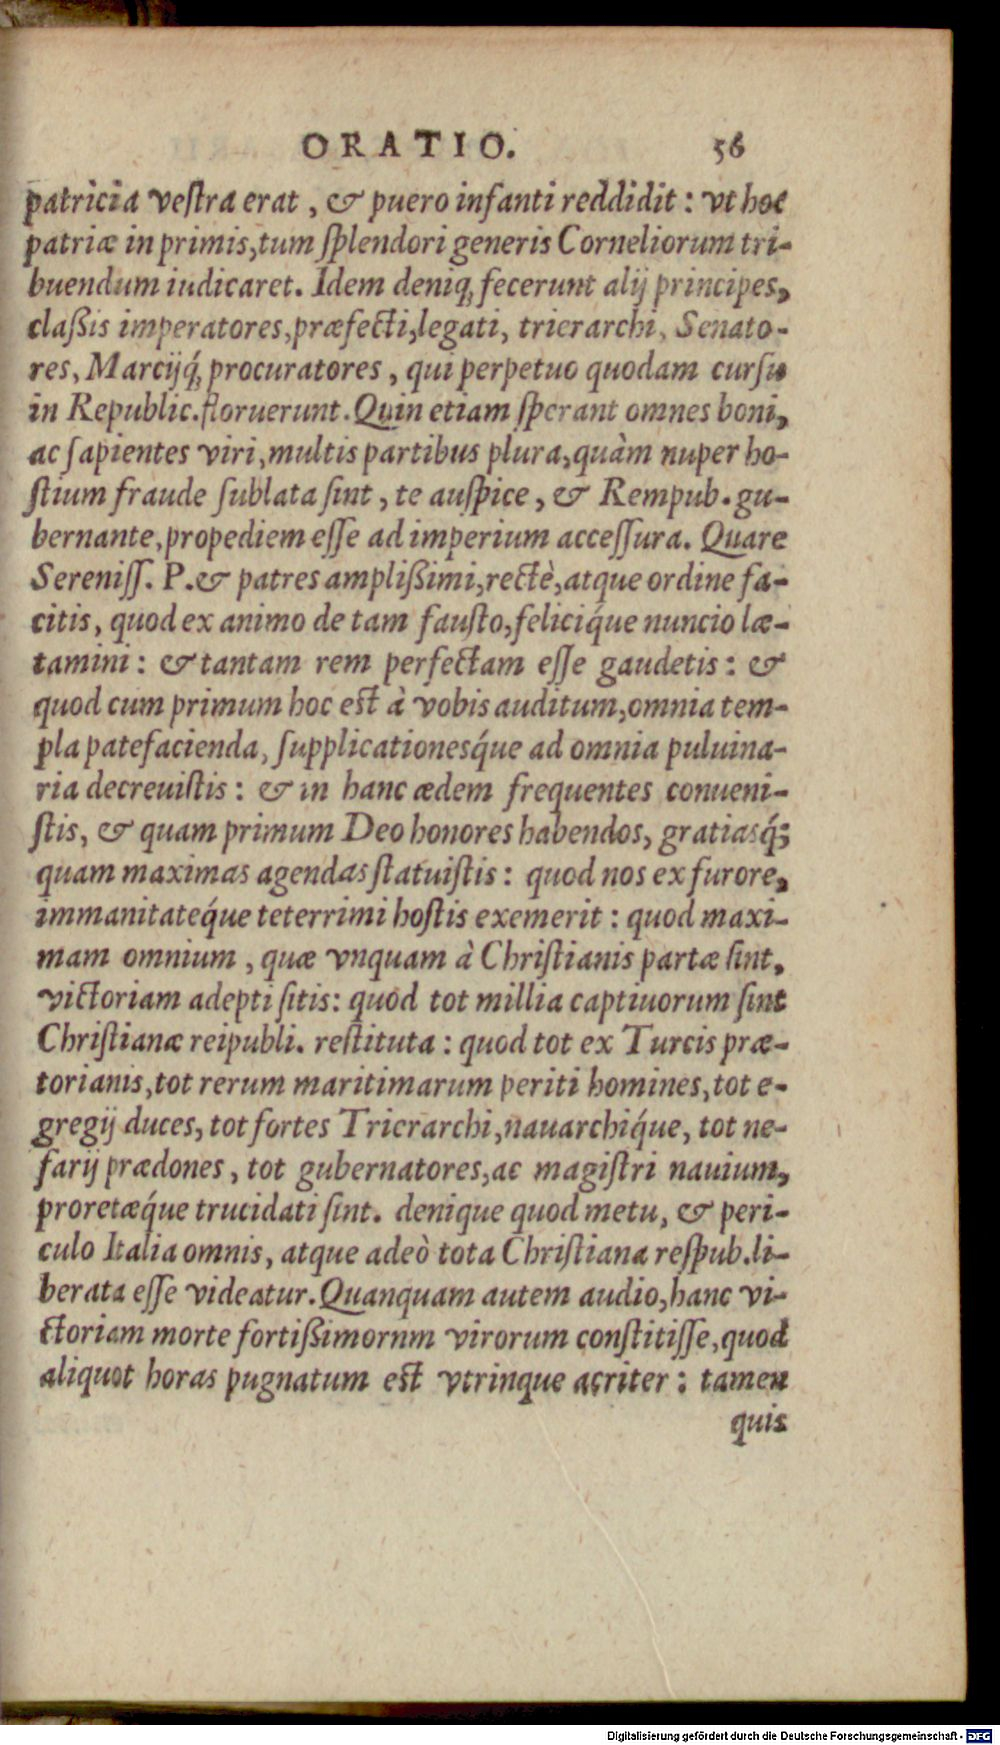 ORATIO. 56
patricia vestra erat, & puero infanti reddidit: vt hoc
patriæ in primis, tum splendori generis Corneliorum tri-
buendum iudicaret. Idem deniq; fecerunt alij principes,
claßis imperatores, præfecti, legati, trierarchi, Senato-
res, Marcijq́; procuratores, qui perpetuo quodam cursu
in Republic. floruerunt. Quin etiam sperant omnes boni,
ac sapientes viri, multis partibus plura, quàm nuper ho-
stium fraude sublata sint, te auspice, & Rempub. gu-
bernante, propediem esse ad imperium accessura. Quare
Sereniss. P. & patres amplißimi, rectè, atque ordine fa-
citis, quod ex animo de tam fausto, feliciq́ue nuncio læ-
tamini: & tantam rem perfectam esse gaudetis: &
quod cum primum hoc est à vobis auditum, omnia tem-
pla patefacienda, supplicationesq́ue ad omnia puluina-
ria decreuistis: & in hanc ædem frequentes conueni-
stis, & quam primum Deo honores habendos, gratiasq́;
quam maximas agendas statuistis: quod nos ex furore,
immanitateq́ue teterrimi hostis exemerit: quod maxi-
mam omnium, quæ vnquam à Christianis partæ sint,
victoriam adepti sitis: quod tot millia captiuorum sint
Christianæ reipubli. restituta: quod tot ex Turcis præ-
torianis, tot rerum maritimarum periti homines, tot e-
gregij duces, tot fortes Trierarchi, nauarchiq́ue, tot ne-
farij prædones, tot gubernatores, ac magistri nauium,
proretæq́ue trucidati sint. denique quod metu, & peri-
culo Italia omnis, atque adeò tota Christiana respub. li-
berata esse videatur. Quanquam autem audio, hanc vi-
ctoriam morte fortißimornm virorum constitisse, quod
aliquot horas pugnatum est vtrinque acriter: tamen
quis
Digitalisierung gefördert durch die Deutsche Forschungsgemeinschaft - DFG